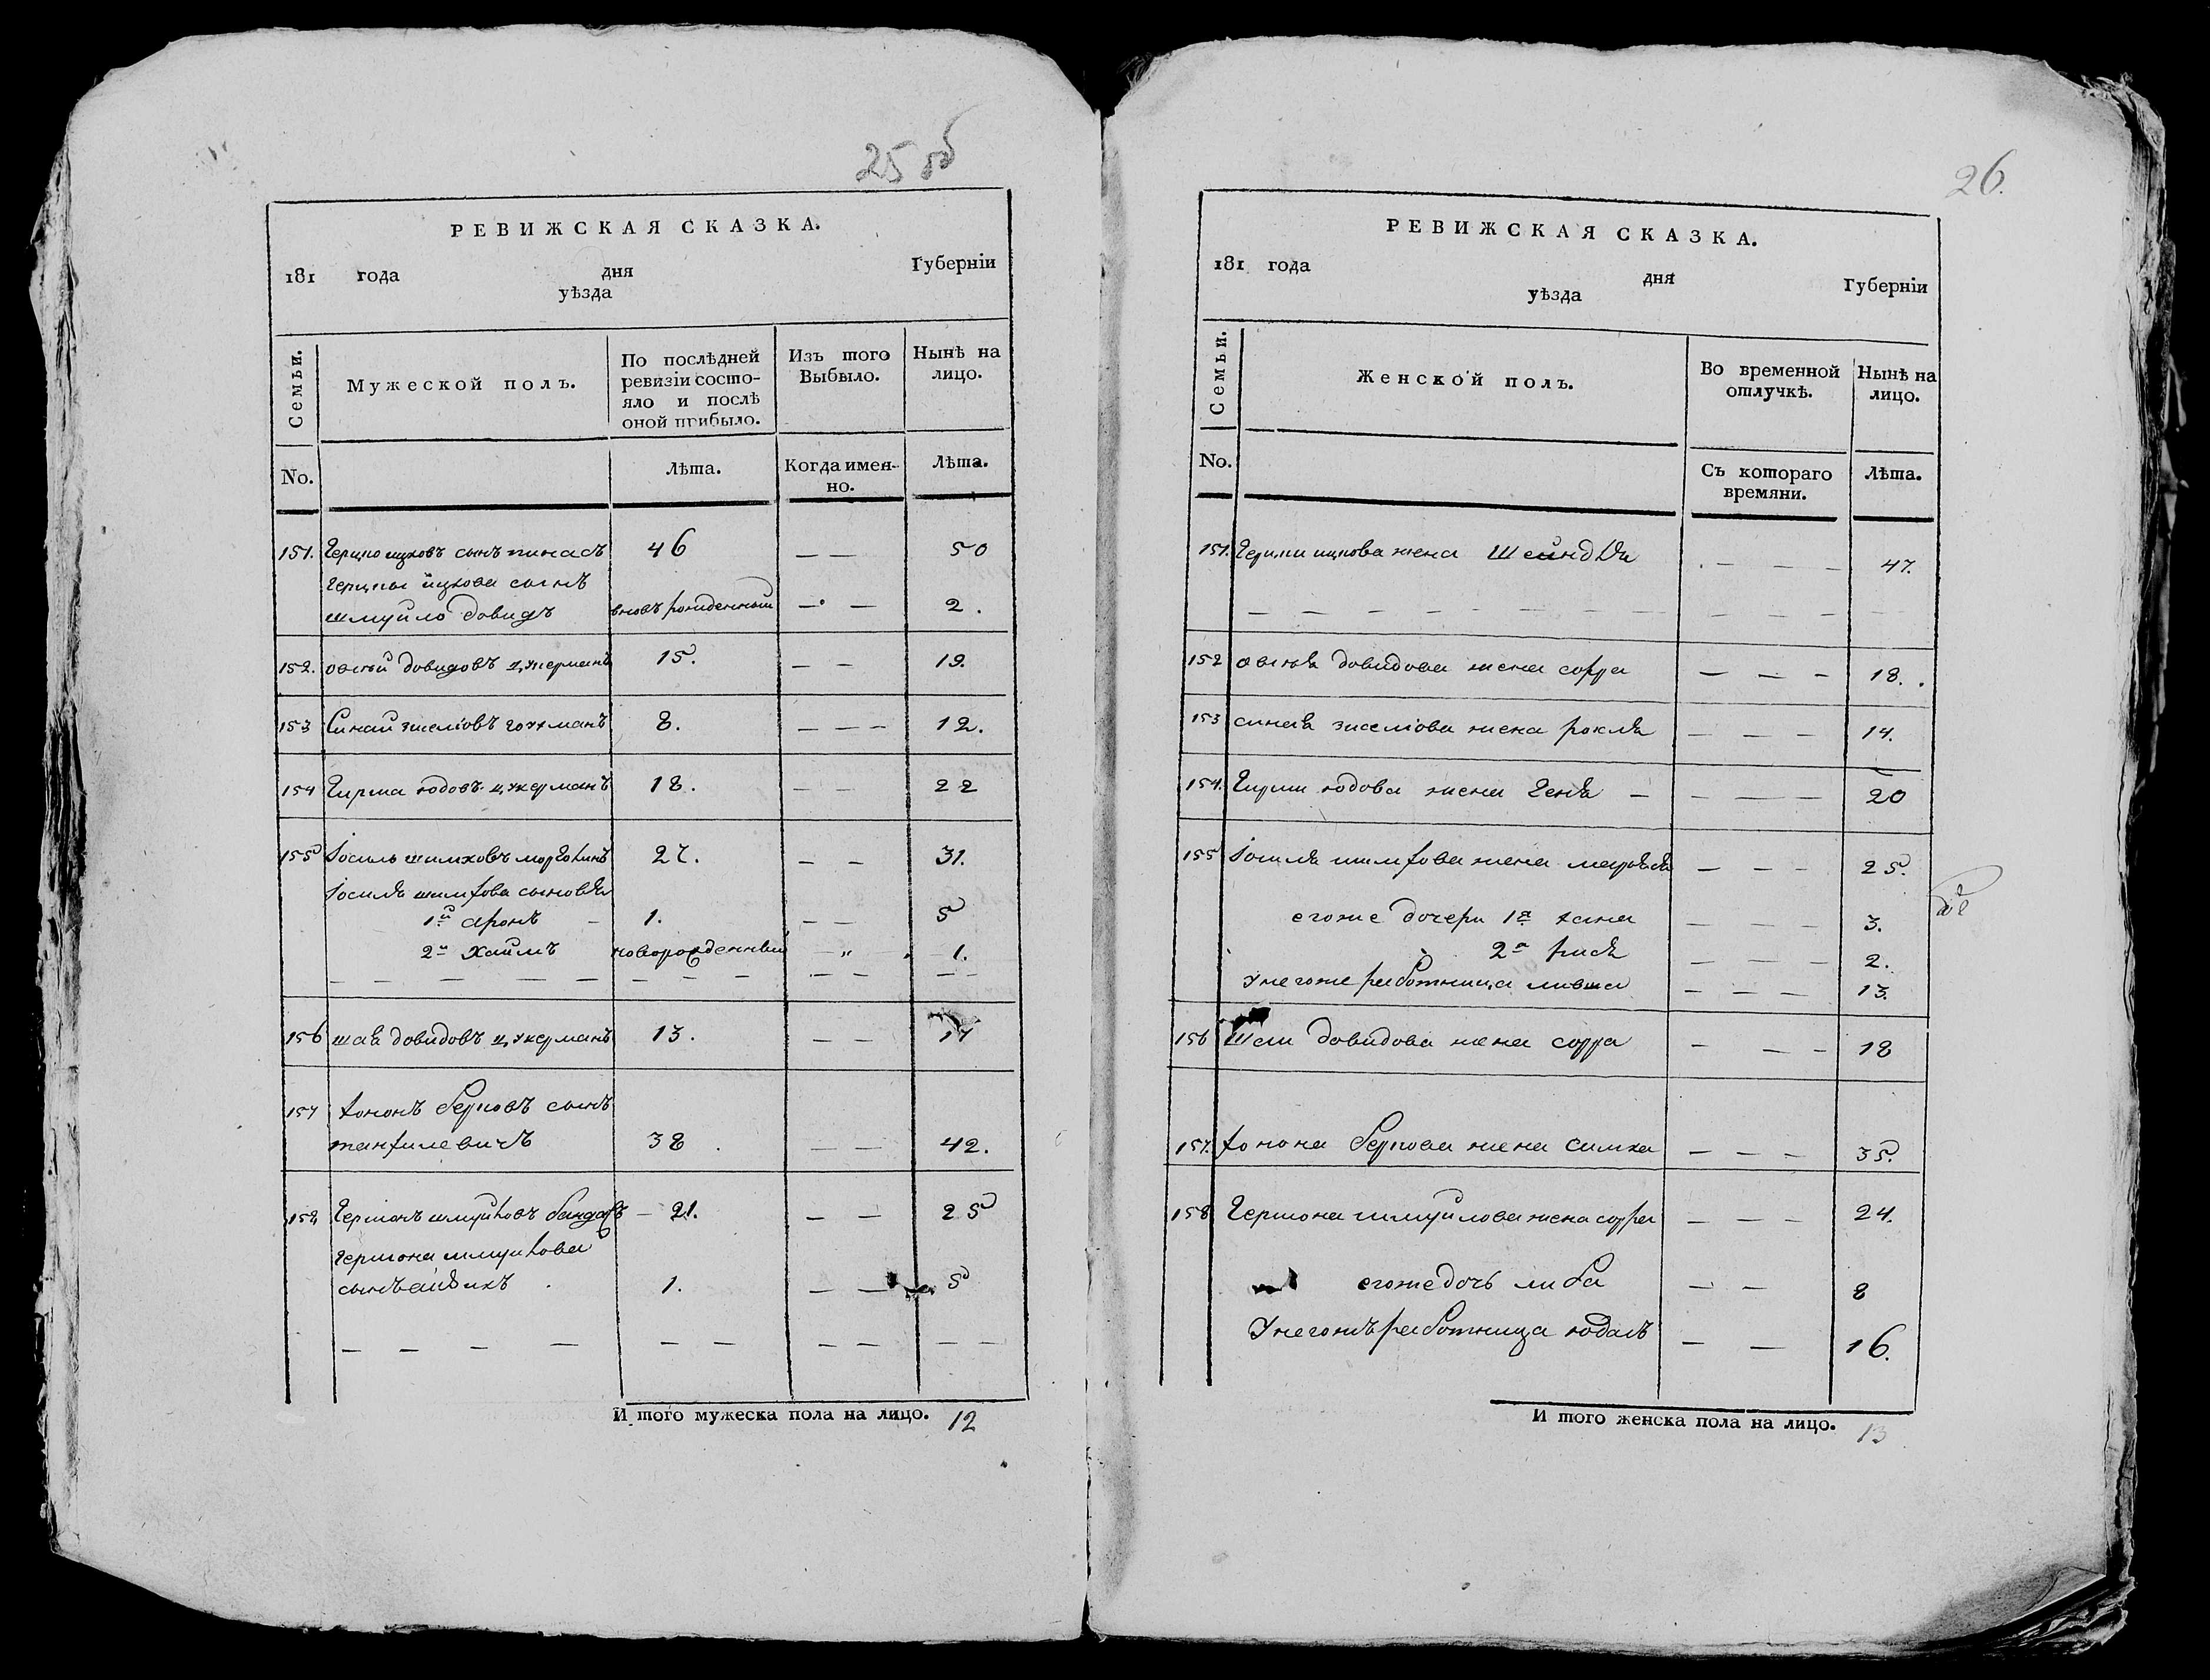 25 об
РЕВИЖСКАЯ СКАЗКА.
181 года дня Губерніи
уѣзда
Семьи.
Мужеской полъ.
По послѣдней ревизіи состо-
яло и послѣ
оной прибыло.
Изъ того
Выбыло.
Нынѣ на
лицо.
No.
Лѣта.
Когда имен-
но.
Лѣта.
151. Герцко ицковъ сынъ пинасъ 46 — — 50
Герцки ицкова сынъ
шмуйло довидъ вновь рожденный — — 2.
152. овсѣй довидовъ цукерманъ 15. — — 19.
153 Синай зиселіовъ гохманъ 8. — — — 12.
154 Гирша юдовъ цукерманъ 18. — — 22
155 Іосиль шимховъ 27. — — 31.
Іосиля шимхова сыновья
1й аронъ — 1. — — 5
2й Хаимъ новорожденный — „ — 1.
— — — — — — — — — — — —
156 шая довидовъ цукерманъ 13. — — 17
157 хононъ берковъ сынъ
танхилевичъ 38 — — 42.
158 Гершонъ шмуйловъ бандаръ — 21. — — 25
Гершона шмуйлова
сынъ айзикъ 1. — — 5
— — — — — — — — — —
И того мужеска пола на лицо. 12
26.
РЕВИЖСКАЯ СКАЗКА.
181 года дня Губерніи
уѣзда
Семьи.
Женской полъ.
Во временной
отлучкѣ.
Нынѣ на
лицо.
No.
Съ котораго
времяни.
Лѣта.
151. Герцки ицкова жена Шейндля — — — 47.
— — — — — — — — — — —
152 овсѣя довидова жена сорра — — — 18.
153 синая зиселіова жена рохля — — — 14.
154. Гирши юдова жена Геня — — — — 20
155 Іосиля шимхова жена — — — 25.
егоже дочери 1я хана — — — 3.
2я рися — — — 2.
У негоже работница ливша — — — 13.
156 Шаи довидова жена сорра — — — 18
157. хонона беркова жена симха — — — 35.
158 Гершона шмуйлова жена сорра — — — 24.
егоже дочь либа — — 8
У негожъ работница юдасъ — — 16.
И того женска пола на лицо. 13